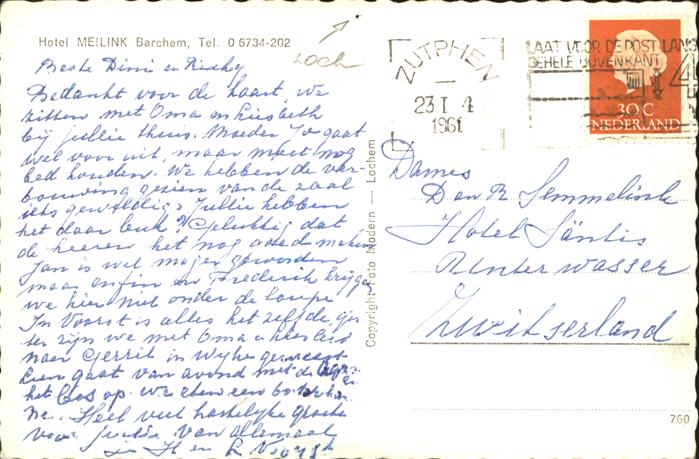 Hotel MEILINK Barchem, Tel. 0 6734-202
Loch
Beste Dini en
Bedankt voor de kaart, We
zitten met Oma en Liesbeth
bij jullie thuis. Moeder Jo gaat
wel vooruit, maar moet nog
bed houden. We hebben de ver-
bouwing gezien van de zaal
iets geweldigs, Jullie hebben
het daar leuk? Gelukkig dat
de heeren het nog goed maken
Jan is wel mager geworden
maar enfin en Frederik krijgen
we hier met onder de loupe
In Voorst is alles het zelfde gis-
teren zijn we met Oma en Liesbeth
naar Gerrit in Wijhe geweest
gaat van avond met de
het los op. We eten een boterham
Heel veel hartelijke groeten
voor jullie van allemaal
H en L Voorst
Copyright Foto Modern — Lochem
ZUTPHEN
23 I 4
1961
LAAT VOOR DE POST LANGS
GEHELE BOVENKANT
4
30 C
NEDERLAND
Dames
D en R Semmelink
Hotel Säntis
Unterwasser
Zwitserland
760